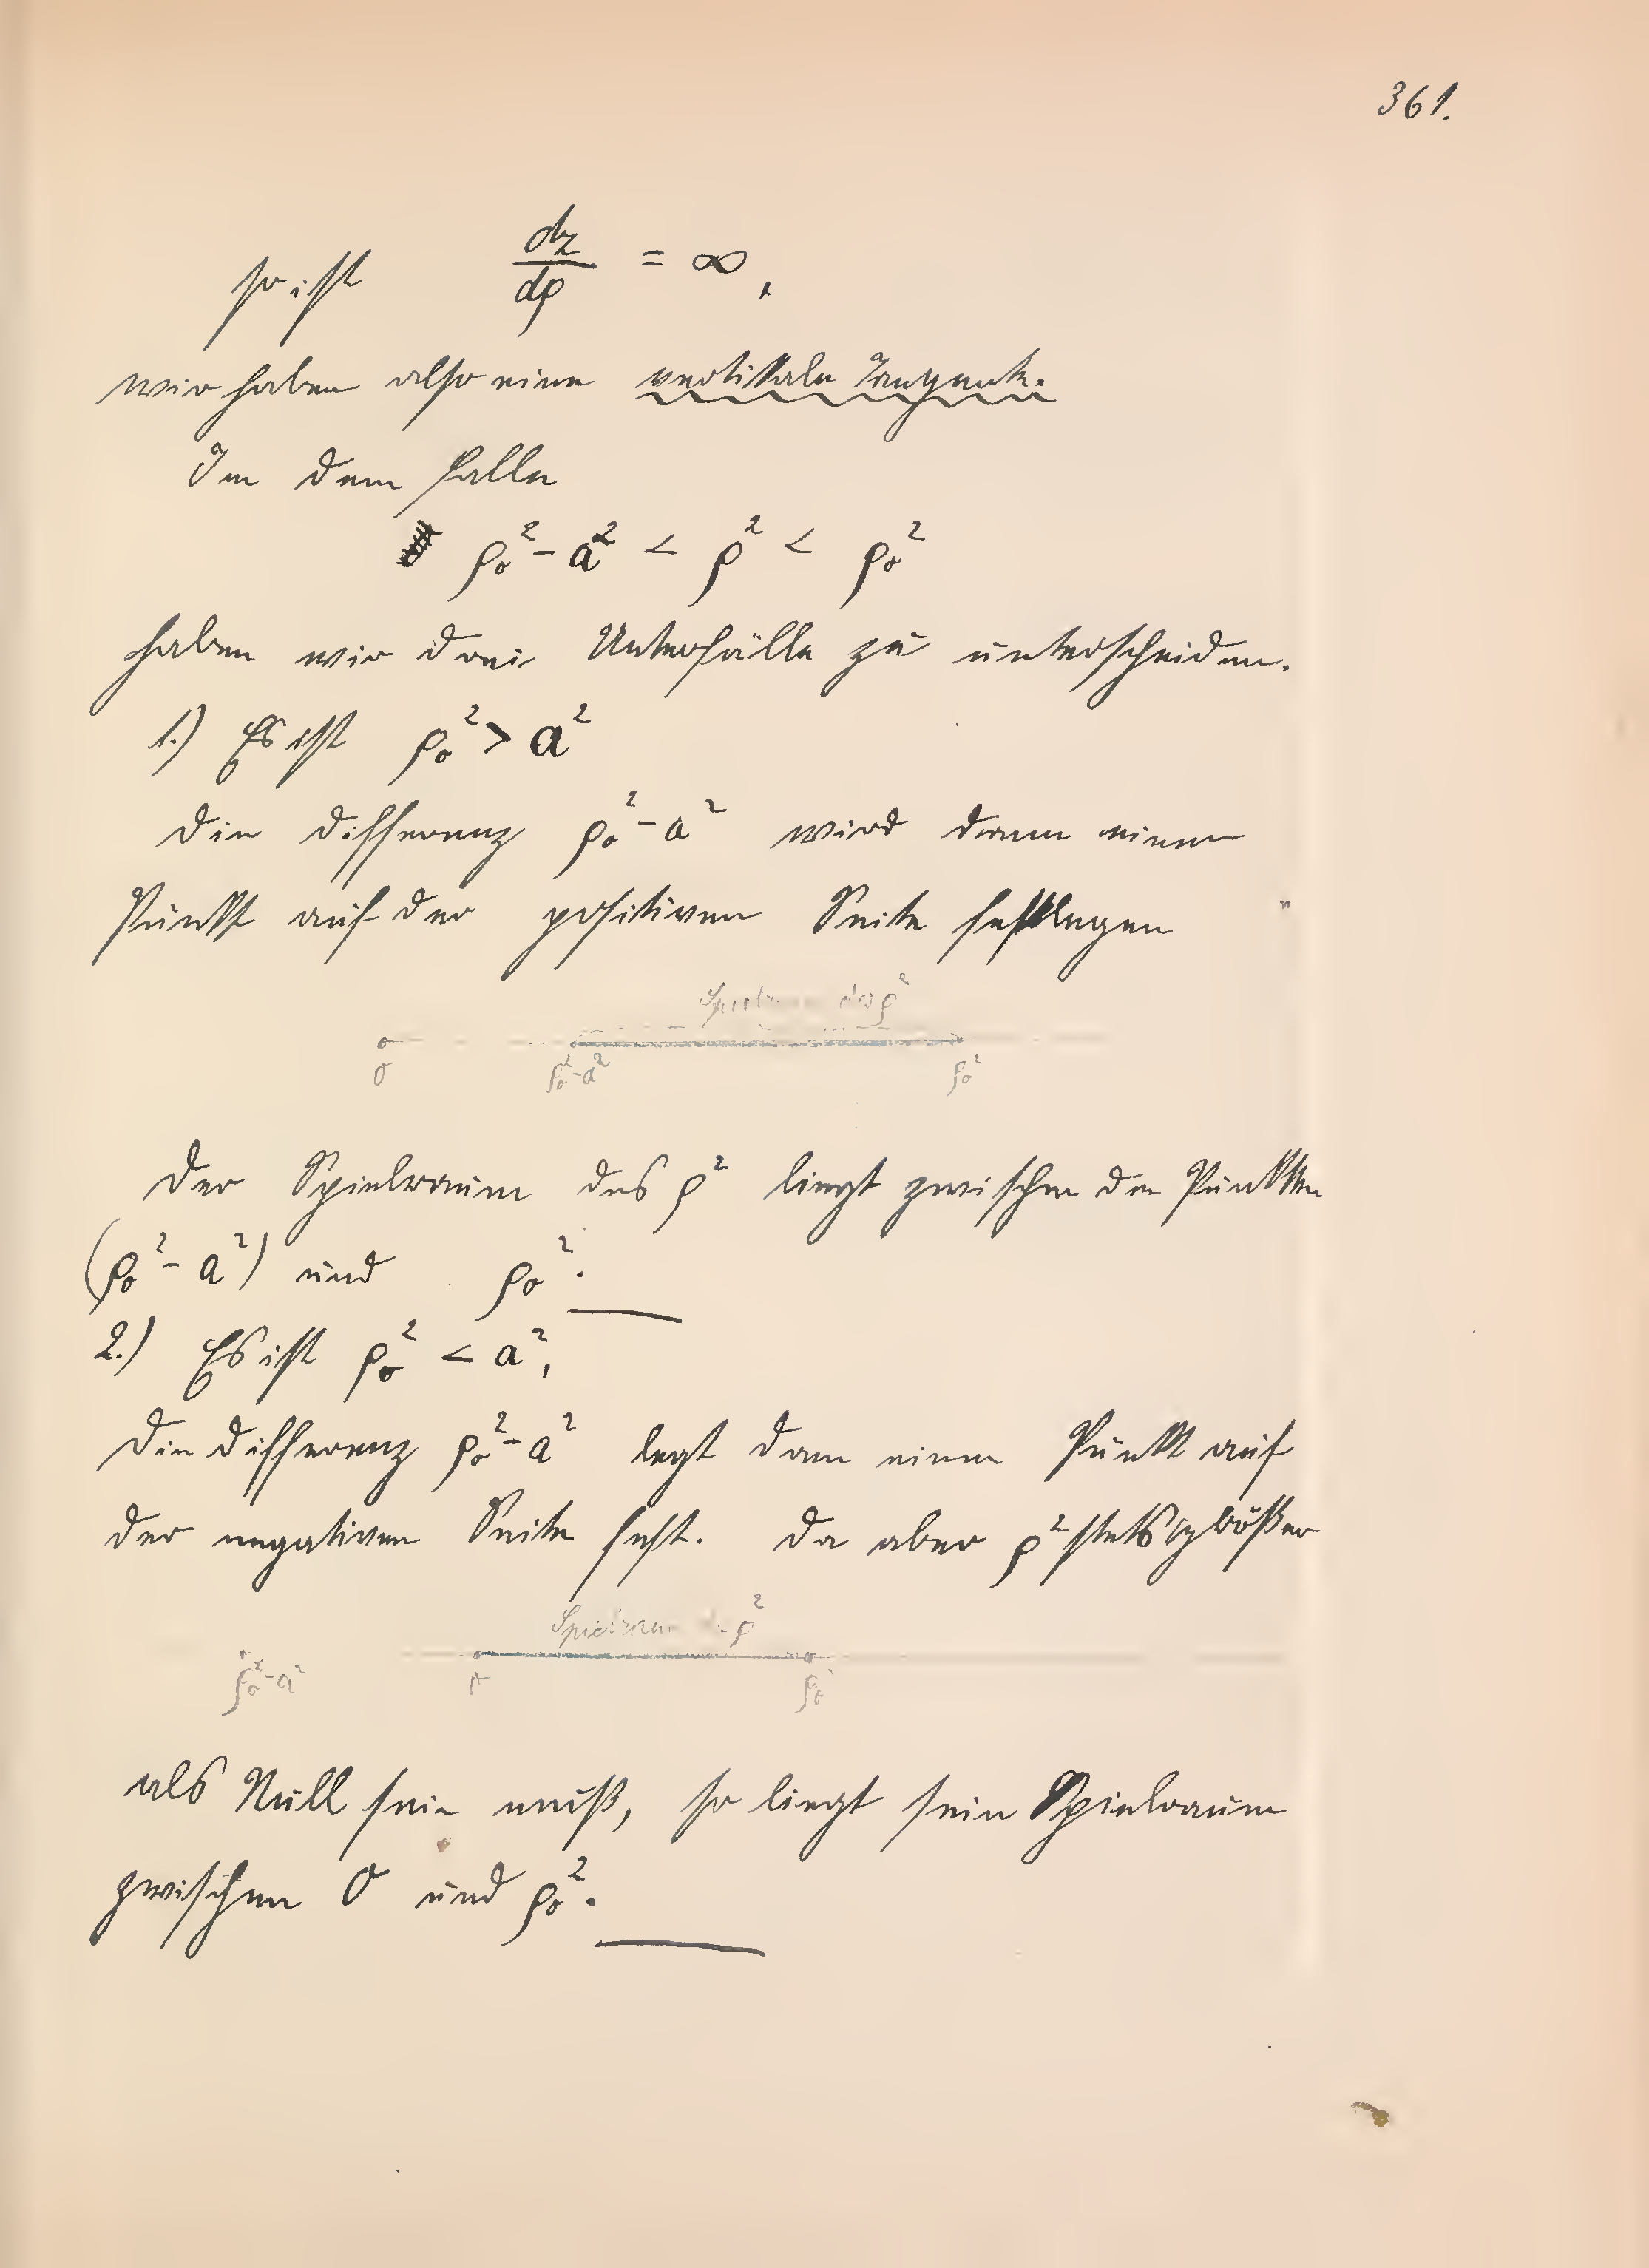 361.
so ist dz/dρ = ∞,
wir haben also eine vertikale Tangente.
In dem Falle
ρ₀² - a² < ρ² < ρ₀²
haben wir drei Unterfälle zu unterscheiden.
1.) Es ist ρ₀² > a²
Die Differenz ρ₀² - a² wird dann einen
Punkt auf der positiven Seite festlegen
Spielraum des ρ²
0 ρ₀² - a² ρ₀²
Der Spielraum des ρ² liegt zwischen den Punkten
(ρ₀² - a²) und ρ₀².
2.) Es ist ρ₀² < a²,
Die Differenz ρ₀² - a² legt dann einen Punkt auf
der negativen Seite fest. Da aber ρ² stets größer
Spielraum des ρ²
ρ₀² - a² 0 ρ₀²
als Null sein muß, so liegt sein Spielraum
zwischen 0 und ρ₀².